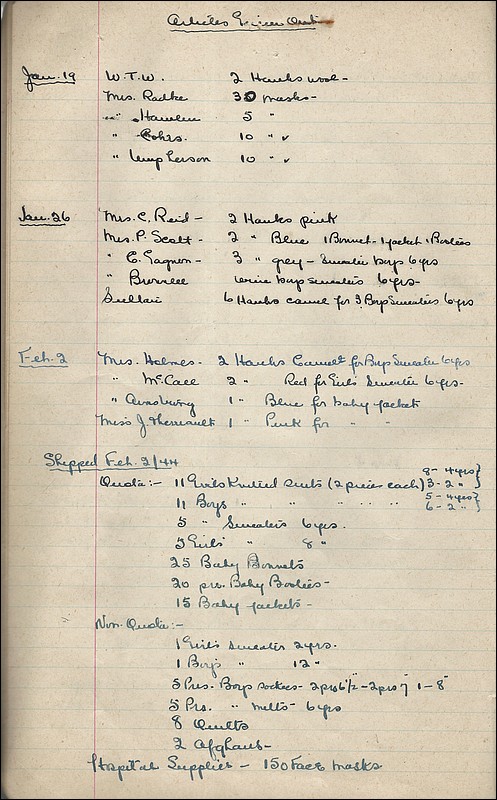 Articles Given Out
Jan. 19 W.T.W. 2 Hanks wool -
Mrs. Radke 30 masks -
" Hamlen 5 "
" Cohrs. 10 " v
" Lung Person 10 " v
Jan. 26 Mrs. C. Reid - 2 Hanks pink
Mrs. P. Scott - 2 " Blue 1 Bonnet - 1 jacket 1 Booties
" E. Gagnon - 3 " grey - Sweater boys 6 yrs
" Brownell wine boys sweaters 6 yrs -
6 Hanks camel for 3 Boys Sweaters 6 yrs
Feb. 2 Mrs. Holmes - 2 Hanks Camel for Boys Sweater 6 yrs
" McCall 2 " Red for Girls Sweater 6 yrs -
" Armstrong 1 " Blue for baby jacket
Miss J. Therriault 1 " Pink for " "
Shipped Feb. 2/44
Quota:- 11 Girls Knitted suits (2 pieces each) 8 - 4 yrs } 3 - 2 " }
11 Boys " " " " " 5 - 4 yrs } 6 - 2 " }
5 " Sweaters 6 yrs.
5 Girls " 8 "
25 Baby Bonnets
20 prs. Baby Booties -
15 Baby jackets -
Non. Quota:-
1 Girl's sweater 2 yrs.
1 Boy's " 12 "
5 Prs. Boys sockees - 2 prs 6 1/2 - 2 prs 7 1 - 8
5 Prs. " mitts - 6 yrs
8 Quilts
2 Afghans -
Hospital Supplies - 150 Face masks